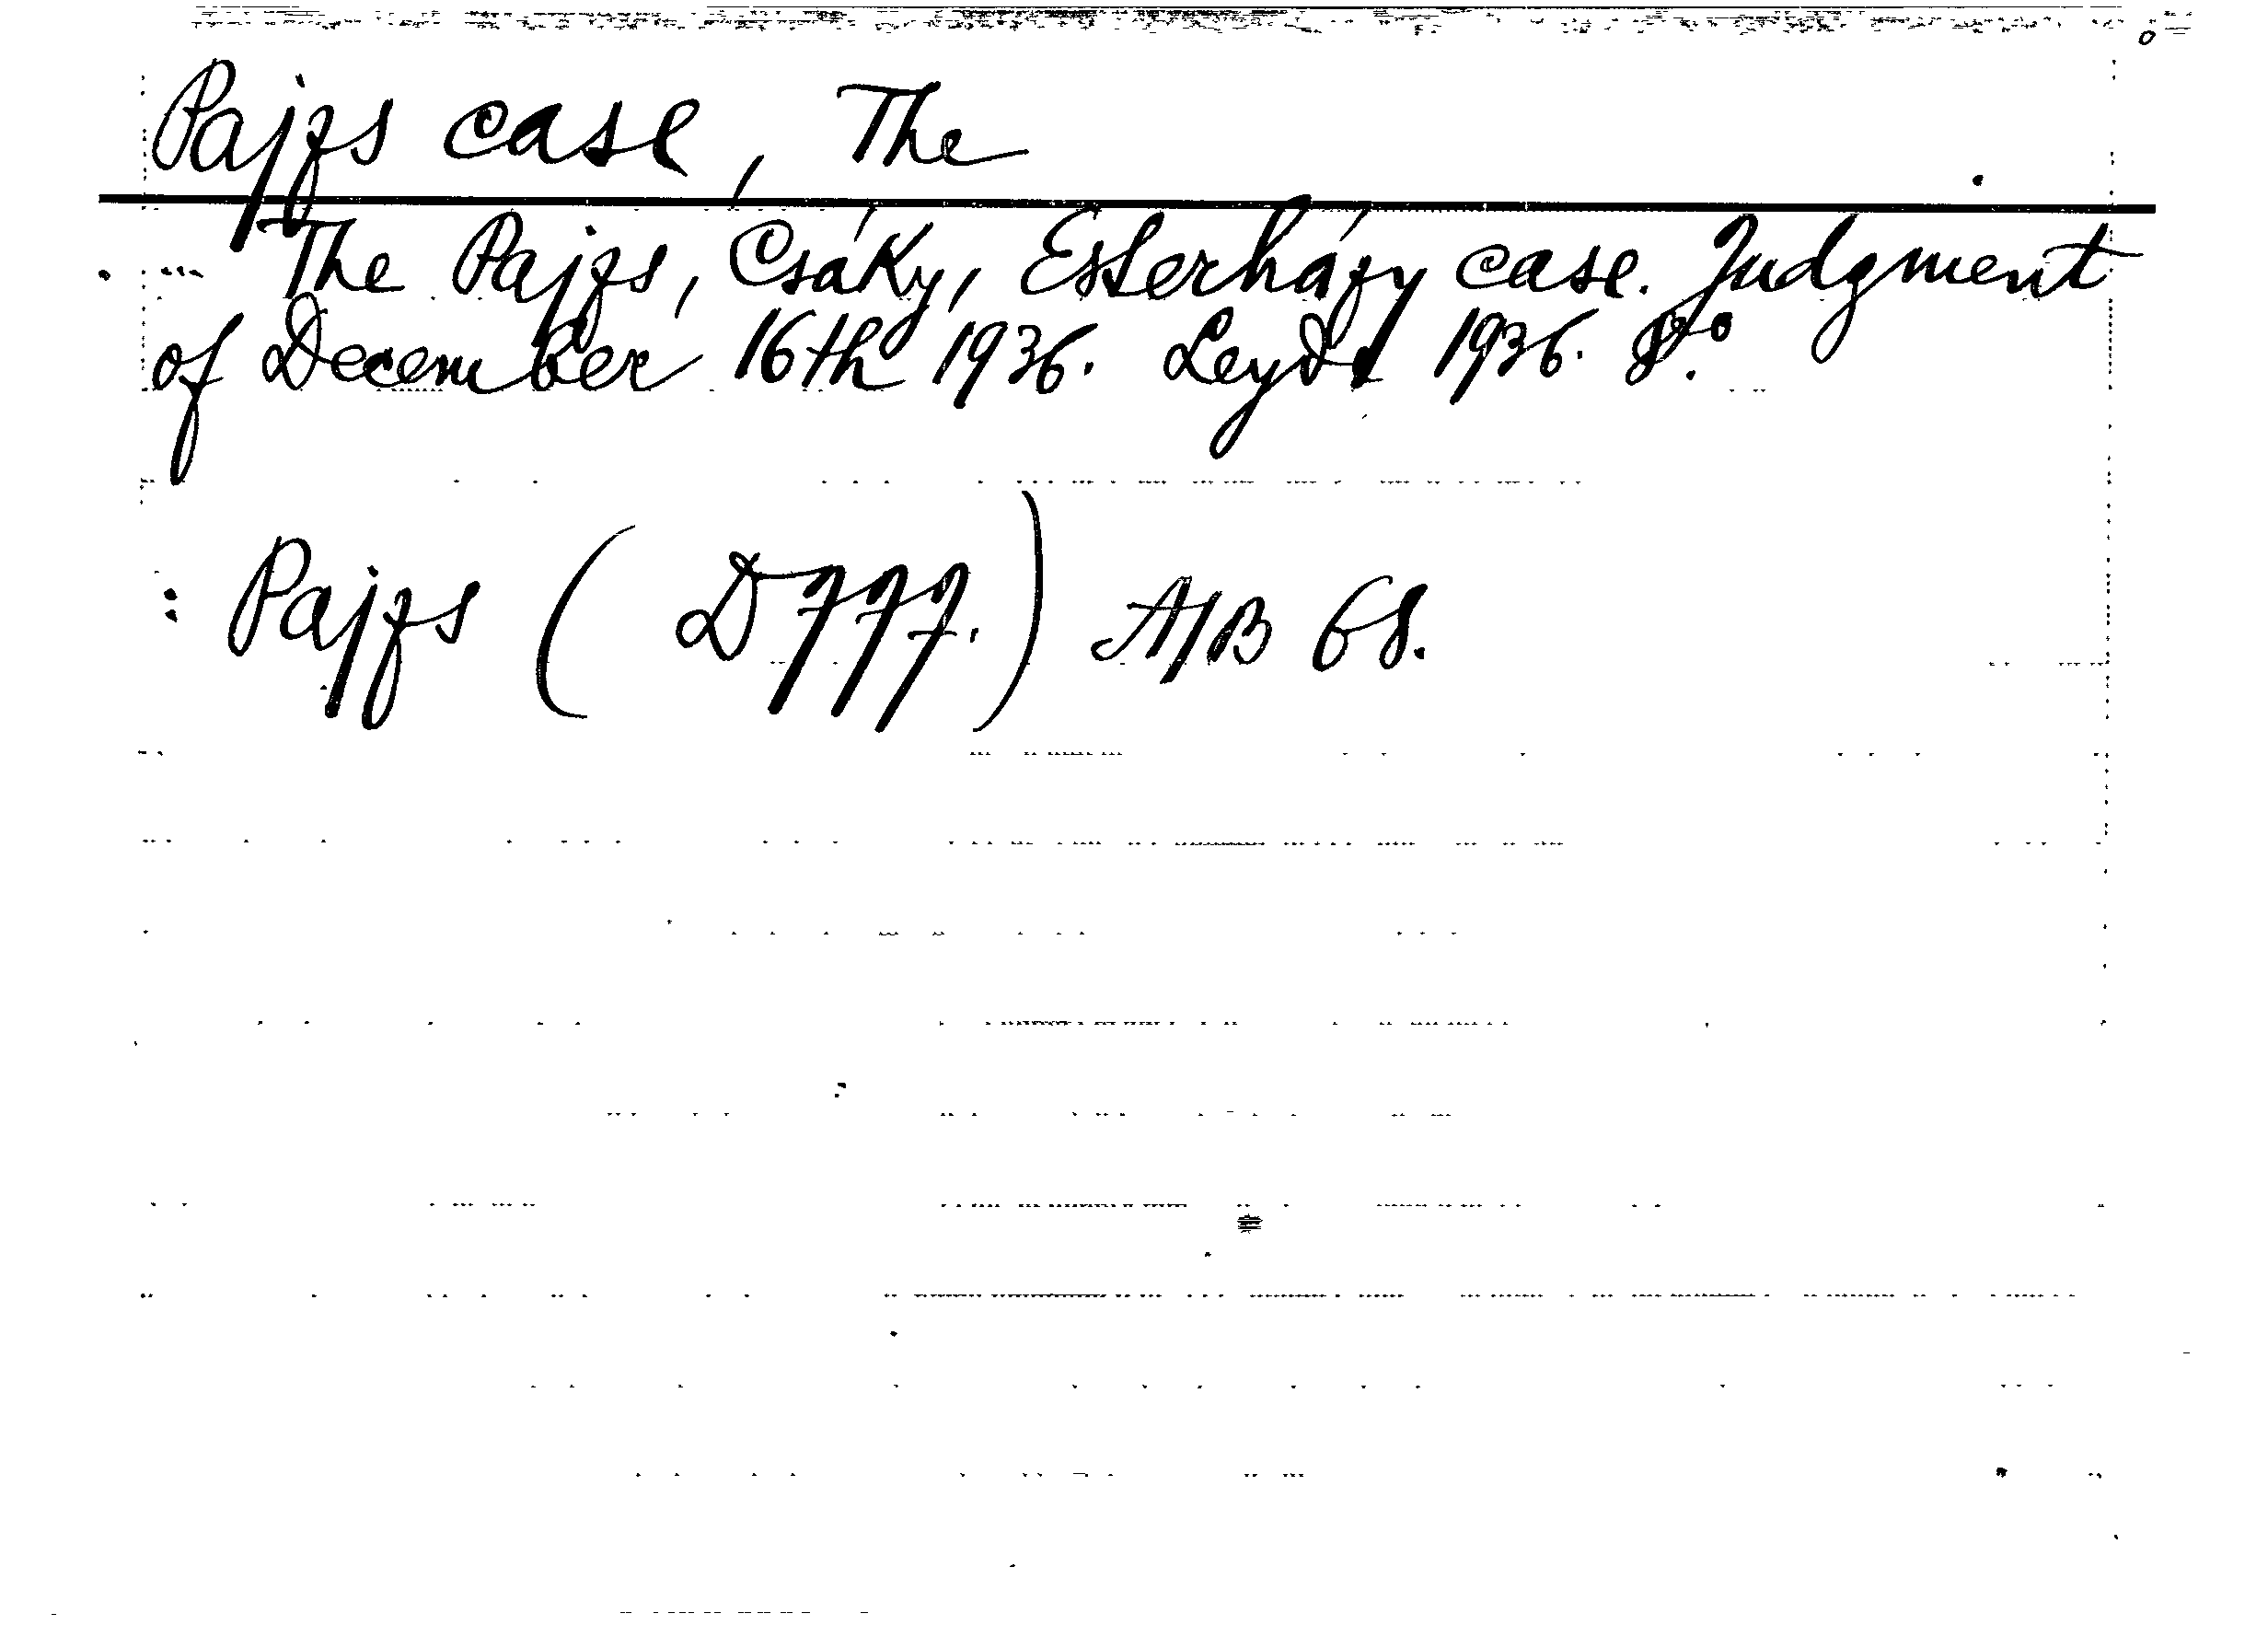 Pajzs case, The
The Pajzs, Csáky, Esterházy case. Judgment
of December 16th 1936. Leyde 1936. 8.°
: Pajzs ( DJJJ. ) A/B 68.